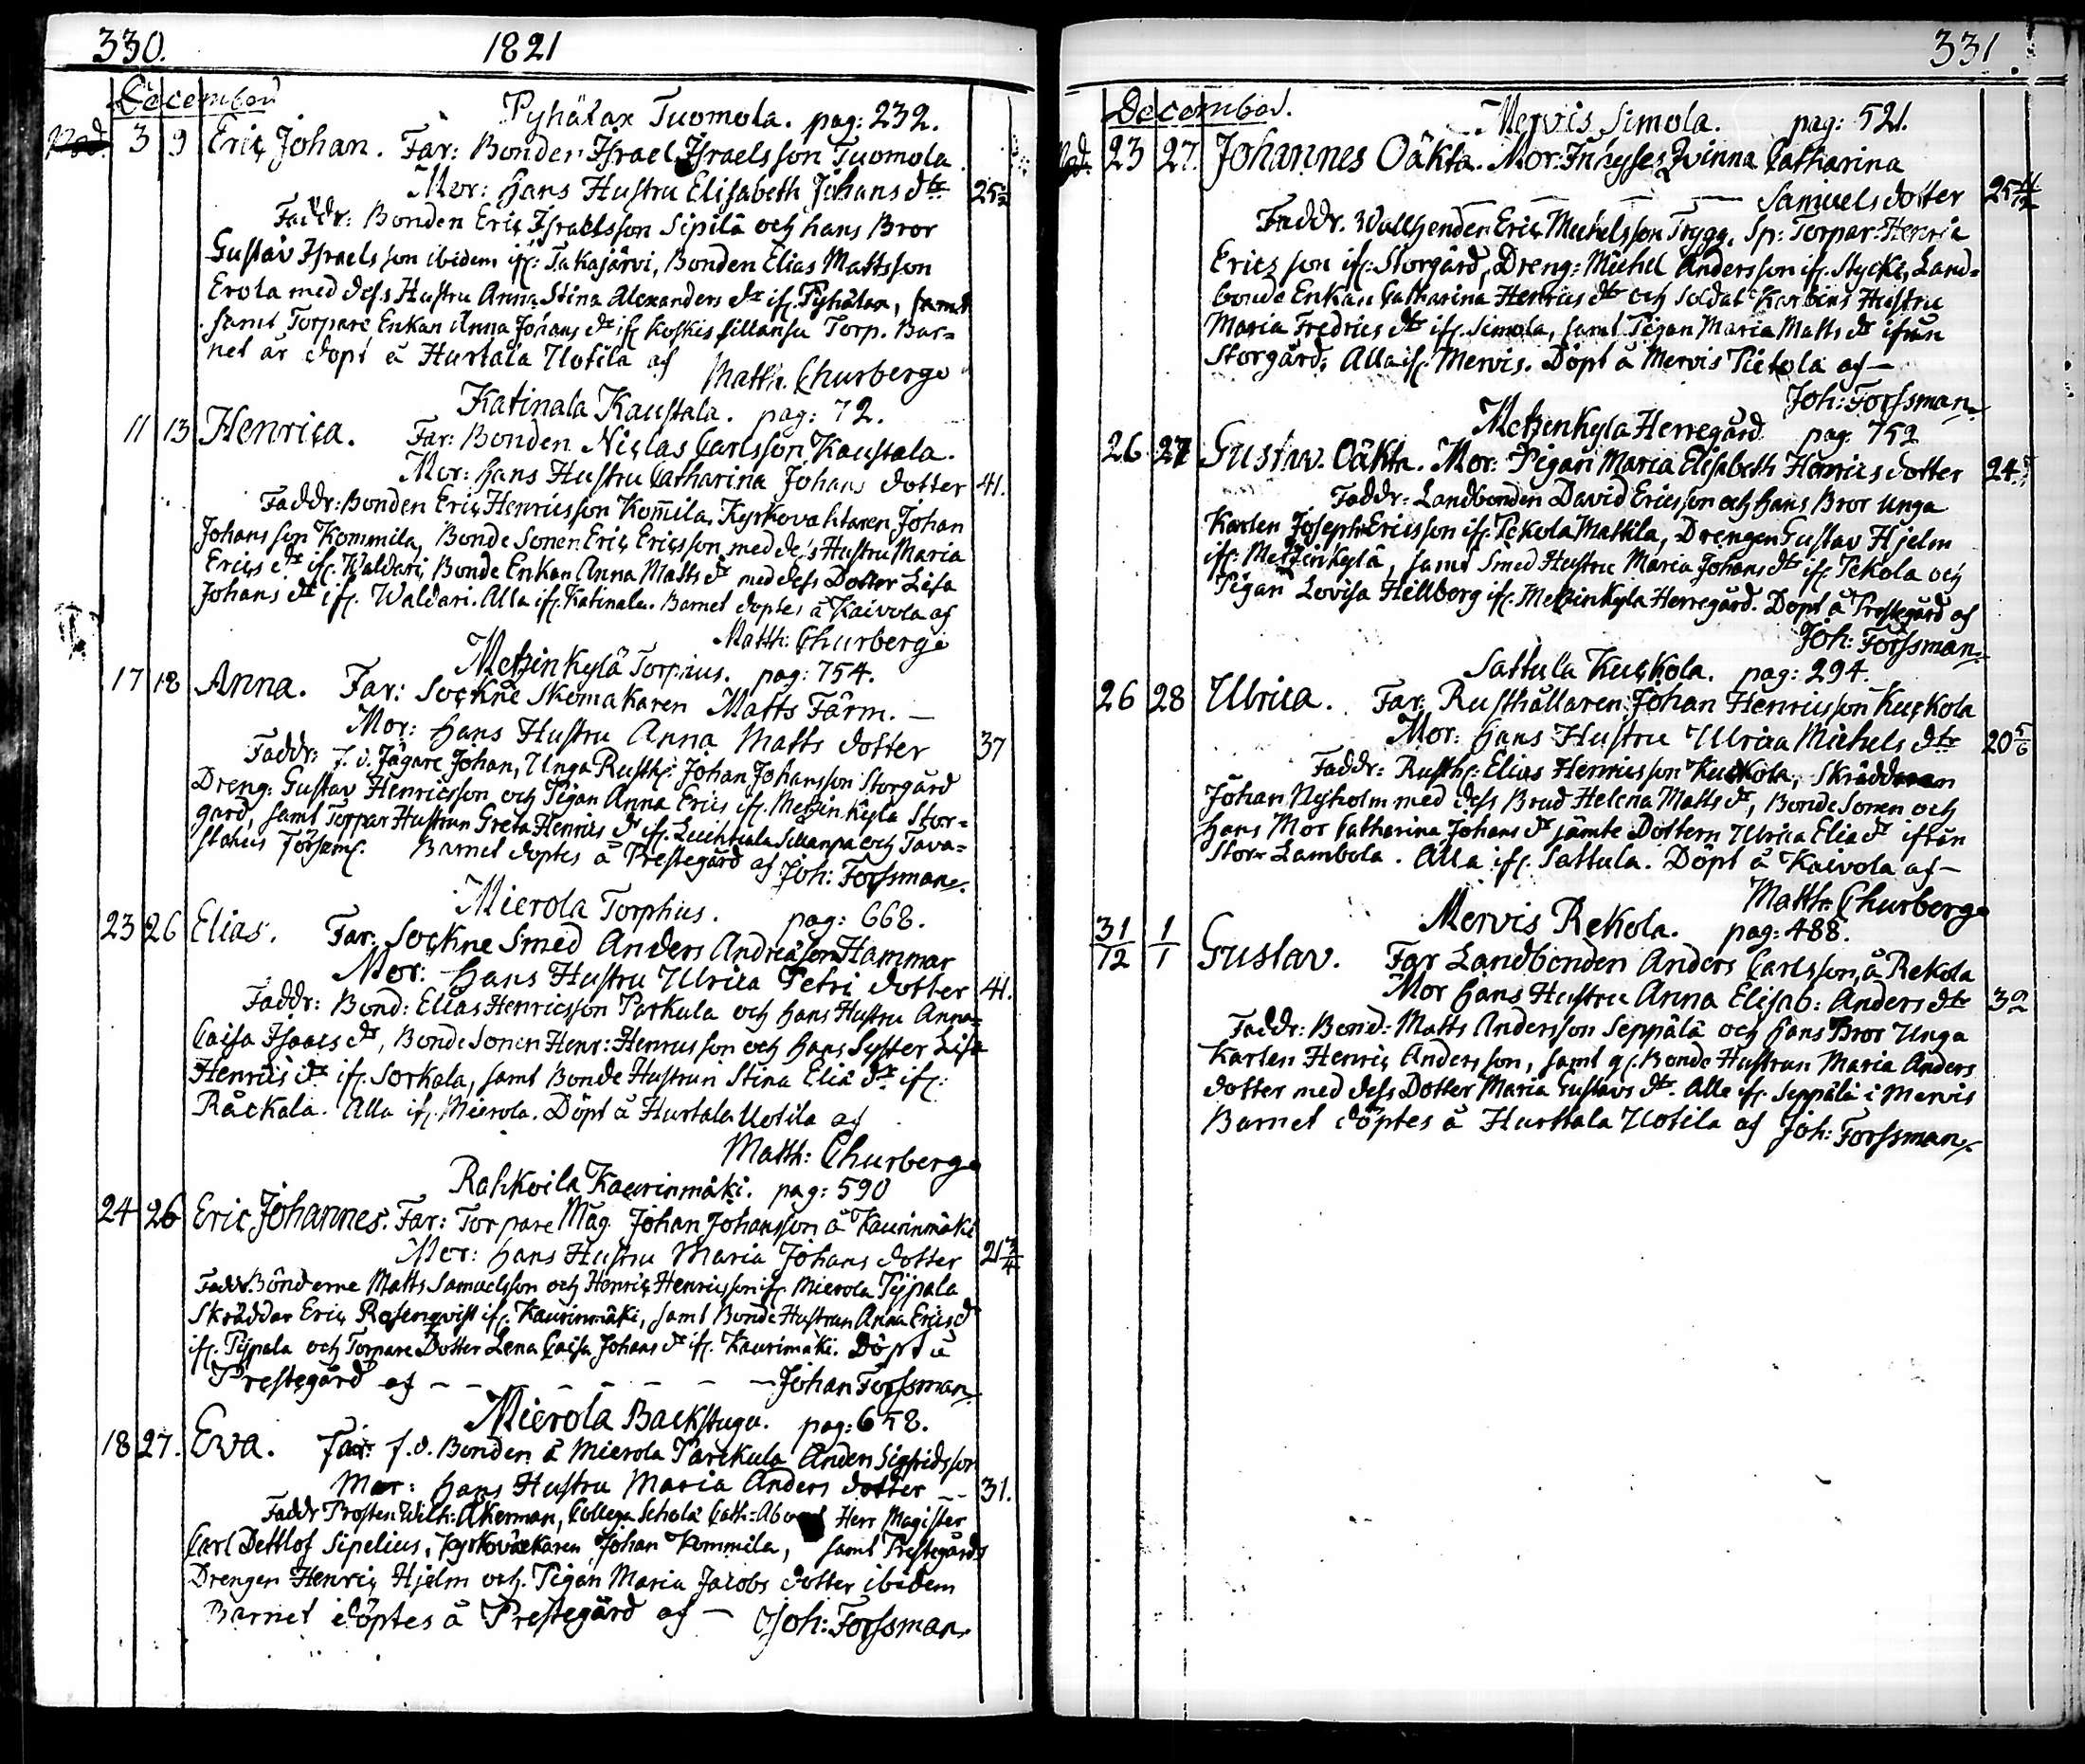 330. 1821
December
Pyhälax Tuomola. pag: 232.
3 9 Eric Johan. Far: Bonden Israel Israelsson Tuomola
Mor: Hans Hustru Elisabeth Johans dtr 25
Faddr: Bonden Eric Israelsson Sipilä och hans Bror
Gustav Israelsson ibidem ifr: Takajärvi, Bonden Elias Mattsson
Erola med dess Hustru Anna Stina Alexanders dr if. Pyhälax, samt
samt Torpare Enkan Anna Johans dr if Koskis Sillansu Torp. Bar=
net är döpt å Hurtala Uotila af Matth. Churberg
Katinala Kaustala. pag: 72.
11 13 Henrica. Far: Bonden Niclas Carlsson Kaustala.
Mor: Hans Hustru Catharina Johans dotter 41.
Faddr: Bonden Eric Henricsson Kom̄ila, Kyrkovaktaren Johan
Johansson Kommila, Bonde Sonen Eric Ericsson med des Hustru Maria
Erics dr if. Waldari, Bonde Enkan Anna Matts dr med dess Dotter Lisa
Johans dr if. Waldari. Alla if. Katinala. Barnet döptes å Kaivola af
Matth: Churberg
Metzinkylä Torpius. pag: 754.
17 18 Anna. Far: Sockne Skomakaren Matts Färm. —
Mor: Hans Hustru Anna Matts dotter 37
Faddr: f. d. Jägare Johan, Unga Rusth: Johan Johansson Storgård
Dreng: Gustav Henricsson och Pigan Anna Erics if. Metzinkyla Stor=
gard, samt Torpar Hustrun Greta Henrics dr if. och Tava=
Barnet döptes å Prestegård af Joh: Forssman.
Mierola Torphus. pag: 668.
23 26 Elias. Far: Sockne Smed Anders Andreasson Hammar
Mor: Hans Hustru Ulrica Petri dotter 41.
Faddr: Bond: Elias Henricsson Parkula och hans Hustru Anna=
Caisa Isaacs dr, Bonde Sonen Henr: Henricsson och hans Syster Lisa
Henrics dr if. Sorkala, samt Bonde Hustrun Stina Eliæ dr if:
Råckala. Alla if. Mierola. Döpt å Hurtala Uotila af
Matth: Churberg
Rahkoila Kaurinmäki. pag: 590
24 26 Eric Johannes. Far: Torpare Måg Johan Johansson å Kaurinmäki
Mor: Hans Hustru Maria Johans dotter 21 3/4
Faddr. Bönderne Matts Samuelsson och Henric Henricsson if. Mierola Pijpala
Skräddar Eric Rosenqvist if. Kaurinmäki, samt Bonde Hustrun Anna Erics d
if. Pijpala och Torpare Dotter Lena Caisa Johans dr if. Kaurimäki. Döpt å
Prestegård af — — — — — — — Johan Forssman
Mierola Backstugu. pag: 658.
18 27. Eva. Far: f. d. Bonden å Mierola Parckula Anders Sigfridsson
Mor: Hans Hustru Maria Anders dotter — 31.
Faddr Prosten Wilh: Åkerman, Collega Schola Cath: Herr Magister
Carl Dettlof Sipelius, Kyrkoväktaren Johan Kommila, samt Prestegårds
Drengen Henric Hjelm och Pigan Maria Jacobs dotter ibidem
Barnet döptes å Prestegård af — Joh: Forssman
331.
December.
Mervis Simola. pag: 521.
23 27. Johannes Oäkta. Mor: Inhyses Qvinna Catharina
— — — — Samuelsdotter 25
Faddr. Wallhenden Eric Michelsson Trygg, Sp: Torpar: Henric
Ericsson if. Storgård, Dreng: Michel Andersson if. Stycki, Land=
bonde Enkan Catharina Henrics dtr och Soldat Karbins Hustru
Maria Fredrics dtr if. Simola, samt Pigan Maria Matts dr ifrån
Storgård. Alla if. Mervis. Döpt å Mervis Pietola af —
Joh: Forssman
Metzenkyla Herregård pag: 752
26 27 Gustav. Oäkta. Mor: Pigan Maria Elisabeth Henricsdotter 24
Faddr: Landbonden David Ericsson och hans Bror Unga
Karlen Joseph Ericsson if. Pekola Mattila, Drengen Gustav Hjelm
if. Metzinkylä, samt Smed Hustru Maria Johans dtr if. Pekola och
Pigan Lovisa Hellberg if. Metzinkyla Herregård. Döpt å Prestegård af
Joh: Forssman
Sattula Kuckola. pag: 294.
26 28 Ulrica. Far: Rusthållaren Johan Henricsson Kuckola
Mor: Hans Hustru Ulrica Michels dtr 20 5/6
Faddr: Rusth: Elias Henricsson Kuckola, Skräddaren
Johan Nyholm med dess Brud Helena Matts dr, Bonde Sonen och
hans Mor Catharina Johans dr jämte Dottern Ulrica Eliæ dr ifrån
Storr Lambola. Alla if. Sattula. Döpt å Kaivola af —
Matth: Churberg
Mervis Rekola. pag: 488.
31/12 1/1 Gustav. Far Landbonden Anders Carlsson å Rekola
Mor Hans Hustru Anna Elisab: Anders dtr 32
Faddr: Bond: Matts Andersson Seppälä och hans Bror Unga
Karlen Henric Andersson, samt gl. Bonde Hustrun Maria Anders
dotter med dess Dotter Maria Gustavs dtr. Alla if. Seppälä i Mervis
Barnet döptes å Hurttala Uotila af Joh: Forssman